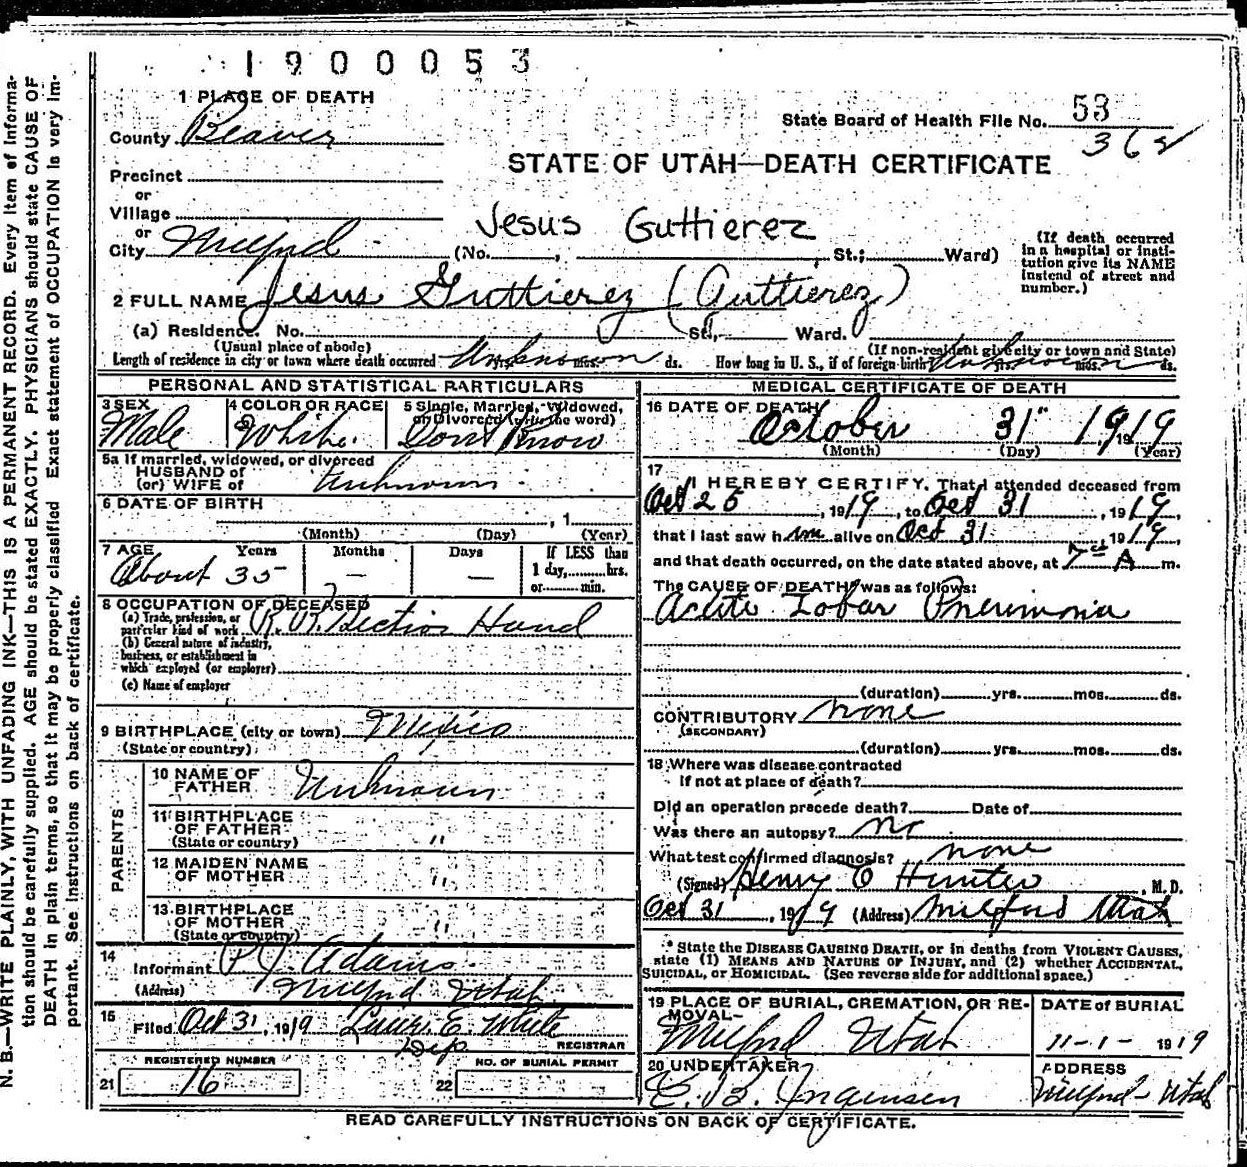 1900053
1 PLACE OF DEATH
County Beaver
State Board of Health File No. 53
STATE OF UTAH—DEATH CERTIFICATE
Precinct
or
Village
or
Jesus Guttierez
City Milford (No. , St.; Ward)
(If death occurred in a hospital or institution give its NAME instead of street and number.)
2 FULL NAME Jesus Guttierez (Guttierez)
(a) Residence. No. St., Ward.
(Usual place of abode) (If non-resident give city or town and State)
Length of residence in city or town where death occurred Unknown yrs. mos. ds. How long in U. S., if of foreign birth Unknown yrs. mos. ds.
PERSONAL AND STATISTICAL PARTICULARS
3 SEX Male
4 COLOR OR RACE White
5 Single, Married, Widowed, or Divorced (write the word) Dont Know
5a If married, widowed, or divorced
HUSBAND of
(or) WIFE of Unknown
6 DATE OF BIRTH
, 1
(Month) (Day) (Year)
7 AGE Years Months Days If LESS than
About 35 — — 1 day, hrs.
or min.
8 OCCUPATION OF DECEASED
(a) Trade, profession, or
particular kind of work R. R. Section Hand
(b) General nature of industry,
business, or establishment in
which employed (or employer)
(c) Name of employer
9 BIRTHPLACE (city or town) Mexico
(State or country)
PARENTS
10 NAME OF FATHER Unknown
11 BIRTHPLACE OF FATHER (State or country) "
12 MAIDEN NAME OF MOTHER "
13 BIRTHPLACE OF MOTHER (State or country) "
14 Informant P J. Adams
(Address) Milford Utah
15 Filed Oct 31, 1919 E. White
Dep REGISTRAR
REGISTERED NUMBER NO. OF BURIAL PERMIT
21 16 22
MEDICAL CERTIFICATE OF DEATH
16 DATE OF DEATH
October 31" 1919 19
(Month) (Day) (Year)
17
I HEREBY CERTIFY, That I attended deceased from
Oct 25, 1919, to Oct 31, 1919,
that I last saw him alive on Oct 31, 1919,
and that death occurred, on the date stated above, at 7 A m.
The CAUSE OF DEATH* was as follows:
Acute Lobar Pneumonia
(duration) yrs. mos. ds.
CONTRIBUTORY none
(SECONDARY)
(duration) yrs. mos. ds.
18 Where was disease contracted
if not at place of death?
Did an operation precede death? Date of
Was there an autopsy? no
What test confirmed diagnosis? none
(Signed) Henry O Hunter, M. D.
Oct 31, 1919 (Address) Milford Utah
* State the DISEASE CAUSING DEATH, or in deaths from VIOLENT CAUSES,
state (1) MEANS AND NATURE OF INJURY, and (2) whether ACCIDENTAL,
SUICIDAL, or HOMICIDAL. (See reverse side for additional space.)
19 PLACE OF BURIAL, CREMATION, OR REMOVAL— DATE of BURIAL
Milford Utah 11-1- 1919
20 UNDERTAKER ADDRESS
Milford - Utah
READ CAREFULLY INSTRUCTIONS ON BACK OF CERTIFICATE.
N. B.—WRITE PLAINLY, WITH UNFADING INK—THIS IS A PERMANENT RECORD. Every item of informa-
tion should be carefully supplied. AGE should be stated EXACTLY. PHYSICIANS should state CAUSE OF
DEATH in plain terms, so that it may be properly classified. Exact statement of OCCUPATION is very im-
portant. See instructions on back of certificate.